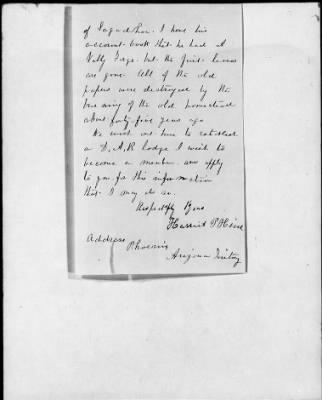 of Sagadahoc. I have his
account-book that he had at
Vally Forge. but the first leaves
are gone. All of the old
papers were destroyed by the
burning of the old homestead
about forty-five years ago
We want out here to establish
a D.A.R lodge I wish to
become a member. and apply
to you for this information
that I may do so.
Respectfly Yours
Harriet P
Address
Phoenix
Arizona Teritory